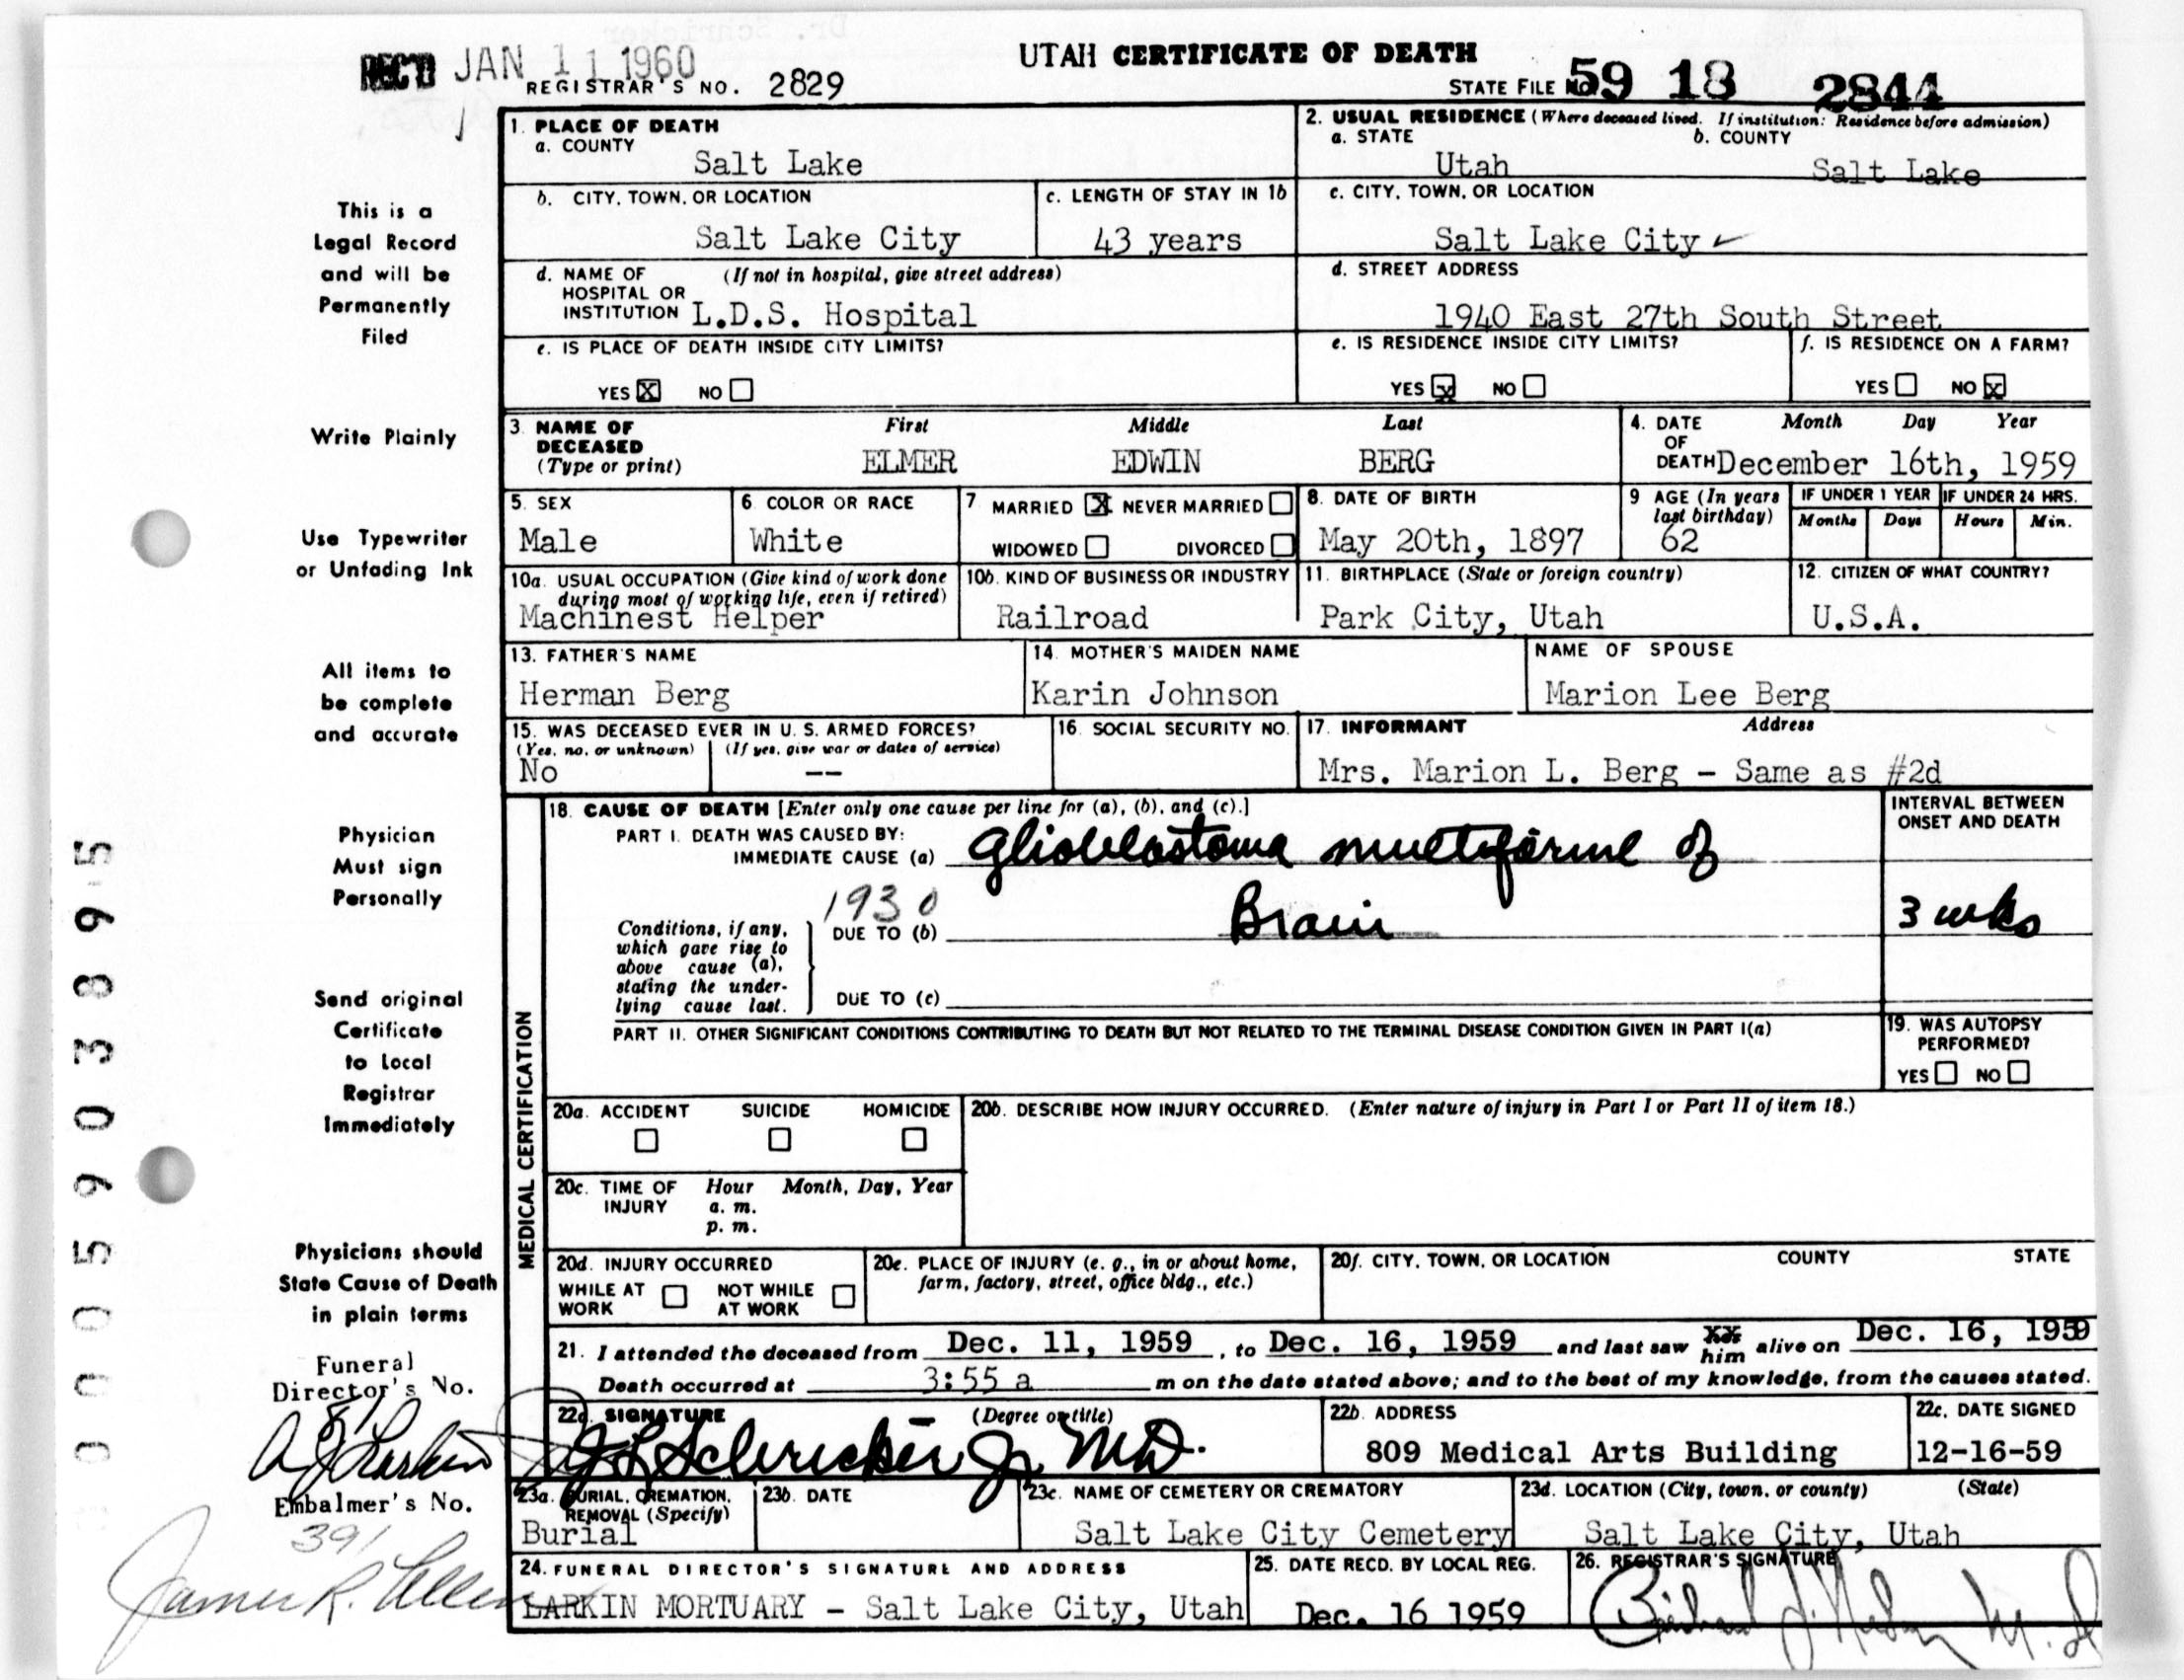 REC'D JAN 11 1960
UTAH CERTIFICATE OF DEATH
REGISTRAR'S NO. 2829
STATE FILE No. 59 18 2844
1. PLACE OF DEATH
a. COUNTY
Salt Lake
2. USUAL RESIDENCE (Where deceased lived. If institution: Residence before admission)
a. STATE b. COUNTY
Utah Salt Lake
b. CITY, TOWN, OR LOCATION
Salt Lake City
c. LENGTH OF STAY IN 1b
43 years
c. CITY, TOWN, OR LOCATION
Salt Lake City
d. NAME OF (If not in hospital, give street address)
HOSPITAL OR
INSTITUTION L.D.S. Hospital
d. STREET ADDRESS
1940 East 27th South Street
e. IS PLACE OF DEATH INSIDE CITY LIMITS?
YES X NO
e. IS RESIDENCE INSIDE CITY LIMITS?
YES X NO
f. IS RESIDENCE ON A FARM?
YES NO X
3. NAME OF DECEASED (Type or print)
First Middle Last
ELMER EDWIN BERG
4. DATE OF DEATH Month Day Year
December 16th, 1959
5. SEX
Male
6. COLOR OR RACE
White
7. MARRIED X NEVER MARRIED
WIDOWED DIVORCED
8. DATE OF BIRTH
May 20th, 1897
9 AGE (In years last birthday)
62
IF UNDER 1 YEAR IF UNDER 24 HRS.
Months Days Hours Min.
10a. USUAL OCCUPATION (Give kind of work done
during most of working life, even if retired)
Machinest Helper
10b. KIND OF BUSINESS OR INDUSTRY
Railroad
11. BIRTHPLACE (State or foreign country)
Park City, Utah
12. CITIZEN OF WHAT COUNTRY?
U.S.A.
13. FATHER'S NAME
Herman Berg
14. MOTHER'S MAIDEN NAME
Karin Johnson
NAME OF SPOUSE
Marion Lee Berg
15. WAS DECEASED EVER IN U. S. ARMED FORCES?
(Yes, no, or unknown) (If yes, give war or dates of service)
No --
16. SOCIAL SECURITY NO.
17. INFORMANT Address
Mrs. Marion L. Berg - Same as #2d
MEDICAL CERTIFICATION
18. CAUSE OF DEATH [Enter only one cause per line for (a), (b), and (c).]
INTERVAL BETWEEN
ONSET AND DEATH
PART I. DEATH WAS CAUSED BY:
IMMEDIATE CAUSE (a) Glioblastoma multiforme of
1930
Conditions, if any,
which gave rise to
above cause (a),
stating the under-
lying cause last.
DUE TO (b) Brain
3 wks
DUE TO (c)
PART II. OTHER SIGNIFICANT CONDITIONS CONTRIBUTING TO DEATH BUT NOT RELATED TO THE TERMINAL DISEASE CONDITION GIVEN IN PART I(a)
19. WAS AUTOPSY
PERFORMED?
YES NO
20a. ACCIDENT SUICIDE HOMICIDE
20b. DESCRIBE HOW INJURY OCCURRED. (Enter nature of injury in Part I or Part II of item 18.)
20c. TIME OF INJURY Hour Month, Day, Year
a. m.
p. m.
20d. INJURY OCCURRED
WHILE AT WORK NOT WHILE AT WORK
20e. PLACE OF INJURY (e. g., in or about home,
farm, factory, street, office bldg., etc.)
20f. CITY, TOWN, OR LOCATION COUNTY STATE
21. I attended the deceased from Dec. 11, 1959, to Dec. 16, 1959 and last saw him alive on Dec. 16, 1959
Death occurred at 3:55 a m on the date stated above; and to the best of my knowledge, from the causes stated.
22a. SIGNATURE (Degree or title)
J L Schricker Jr MD.
22b. ADDRESS
809 Medical Arts Building
22c. DATE SIGNED
12-16-59
23a. BURIAL, CREMATION,
REMOVAL (Specify)
Burial
23b. DATE
23c. NAME OF CEMETERY OR CREMATORY
Salt Lake City Cemetery
23d. LOCATION (City, town, or county) (State)
Salt Lake City, Utah
24. FUNERAL DIRECTOR'S SIGNATURE AND ADDRESS
LARKIN MORTUARY - Salt Lake City, Utah
25. DATE RECD. BY LOCAL REG.
Dec. 16 1959
26. REGISTRAR'S SIGNATURE
This is a
Legal Record
and will be
Permanently
Filed
Write Plainly
Use Typewriter
or Unfading Ink
All items to
be complete
and accurate
Physician
Must sign
Personally
Send original
Certificate
to Local
Registrar
Immediately
Physicians should
State Cause of Death
in plain terms
Funeral
Director's No.
Embalmer's No.
391
James R. Allen